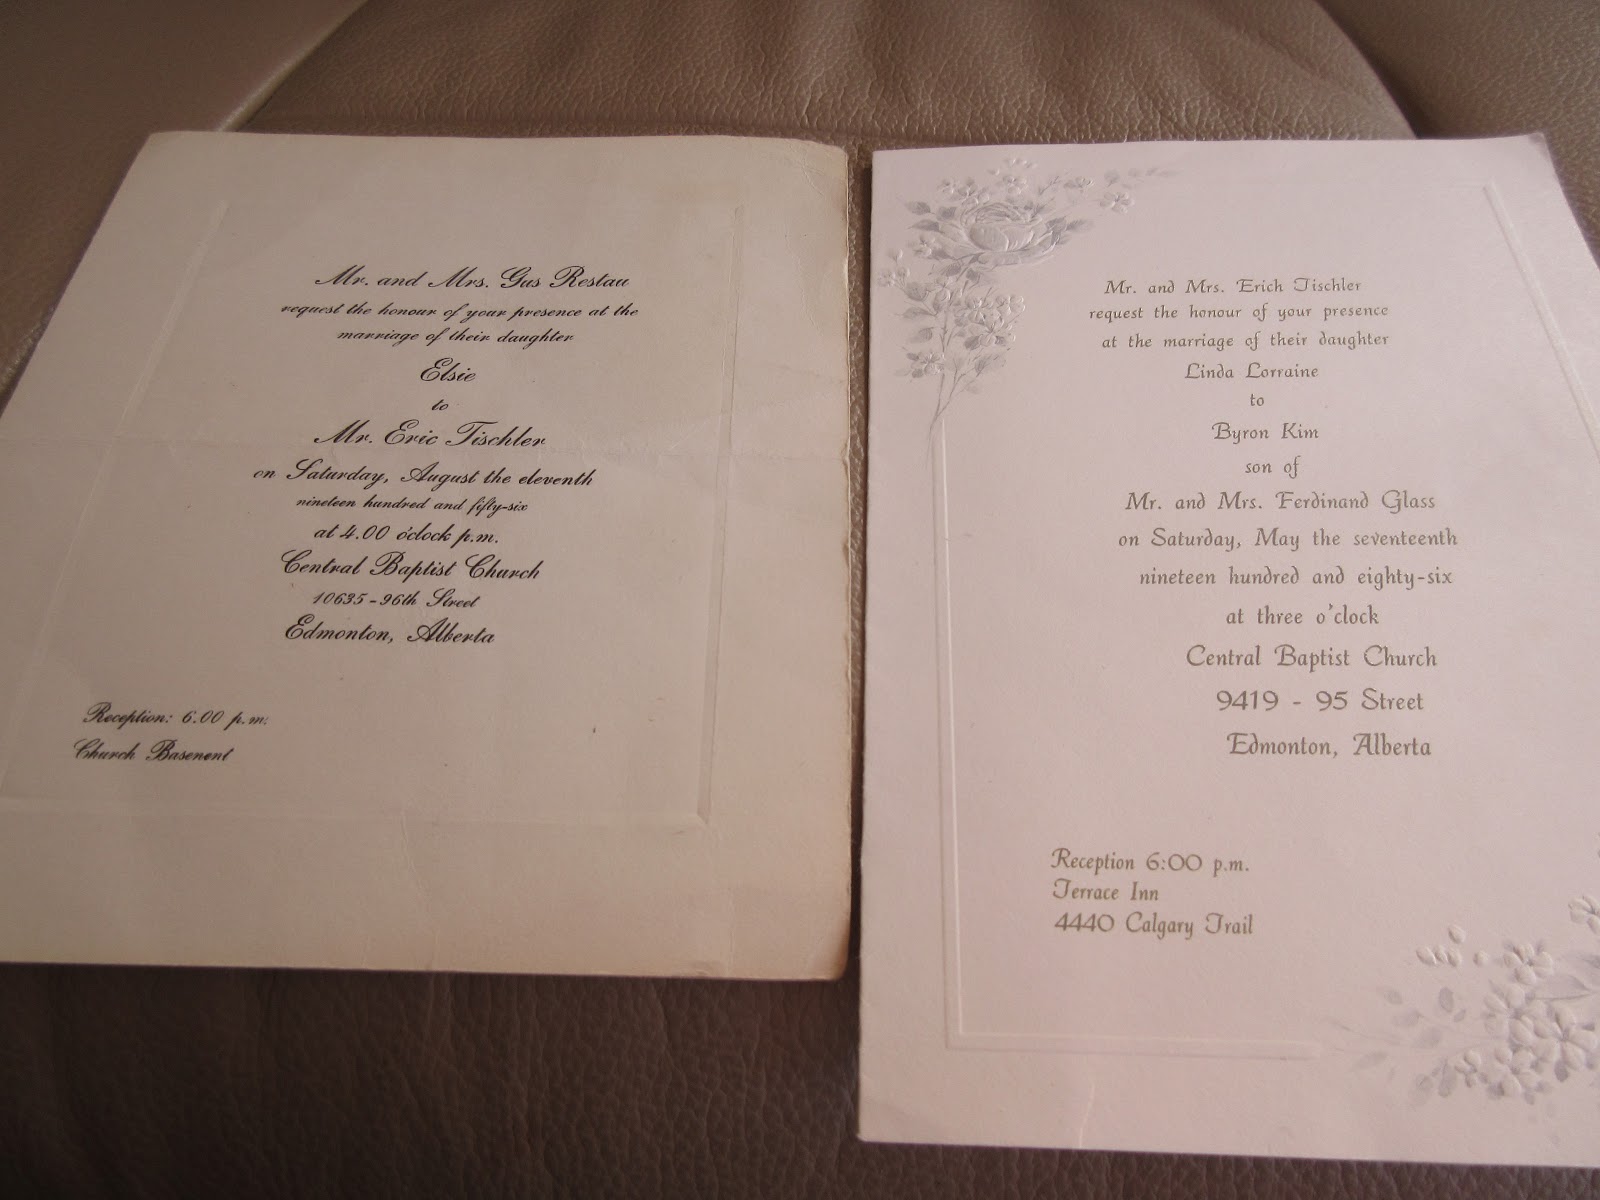 Mr. and Mrs. Gus Restau
request the honour of your presence at the
marriage of their daughter
Elsie
to
Mr. Eric Tischler
on Saturday, August the eleventh
nineteen hundred and fifty-six
at 4.00 o'clock p.m.
Central Baptist Church
10635-96th Street
Edmonton, Alberta
Reception: 6.00 p.m.
Church Basenent
Mr. and Mrs. Erich Tischler
request the honour of your presence
at the marriage of their daughter
Linda Lorraine
to
Byron Kim
son of
Mr. and Mrs. Ferdinand Glass
on Saturday, May the seventeenth
nineteen hundred and eighty-six
at three o'clock
Central Baptist Church
9419 - 95 Street
Edmonton, Alberta
Reception 6:00 p.m.
Terrace Inn
4440 Calgary Trail